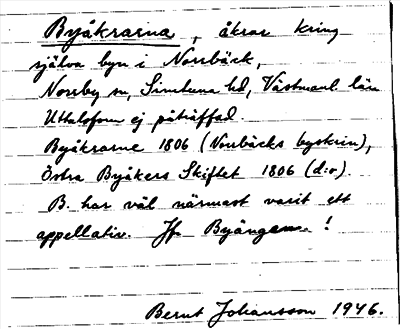 Byåkrarna, åkrar kring
själva byn i Norrbäck,
Norrby sn, Simtuna hd, Västmanl. län
Uttalsform ej påträffad.
Byåkrarne 1806 (Norrbäcks byskrin),
Östra Byåkers Skiftet 1806 (d:o).
B. har väl närmast varit ett
appellativ. Jfr Byängarna!
Bernt Johansson 1946.